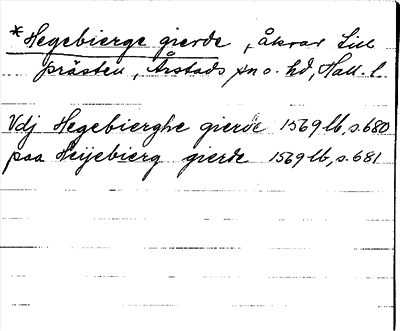 *Hegebierge gierde, åkrar till
prästen, Årstads sn o. hd, Hall. l.
Vdj Hegebierghe gierde 1569 lb, s. 680
paa Heijebierg gierde 1569 lb, s. 681